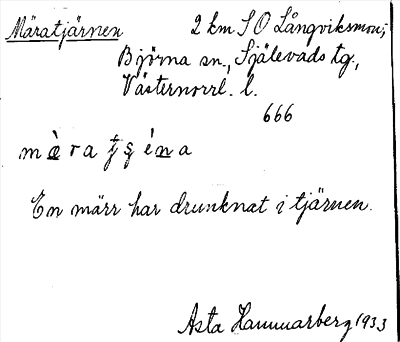 Märatjärnen 2 km S O Långviksmon;
Björna sn., Själevads tg.,
Västernorrl. l.
666
En märr har drunknat i tjärnen.
Asta Hammarberg 1933